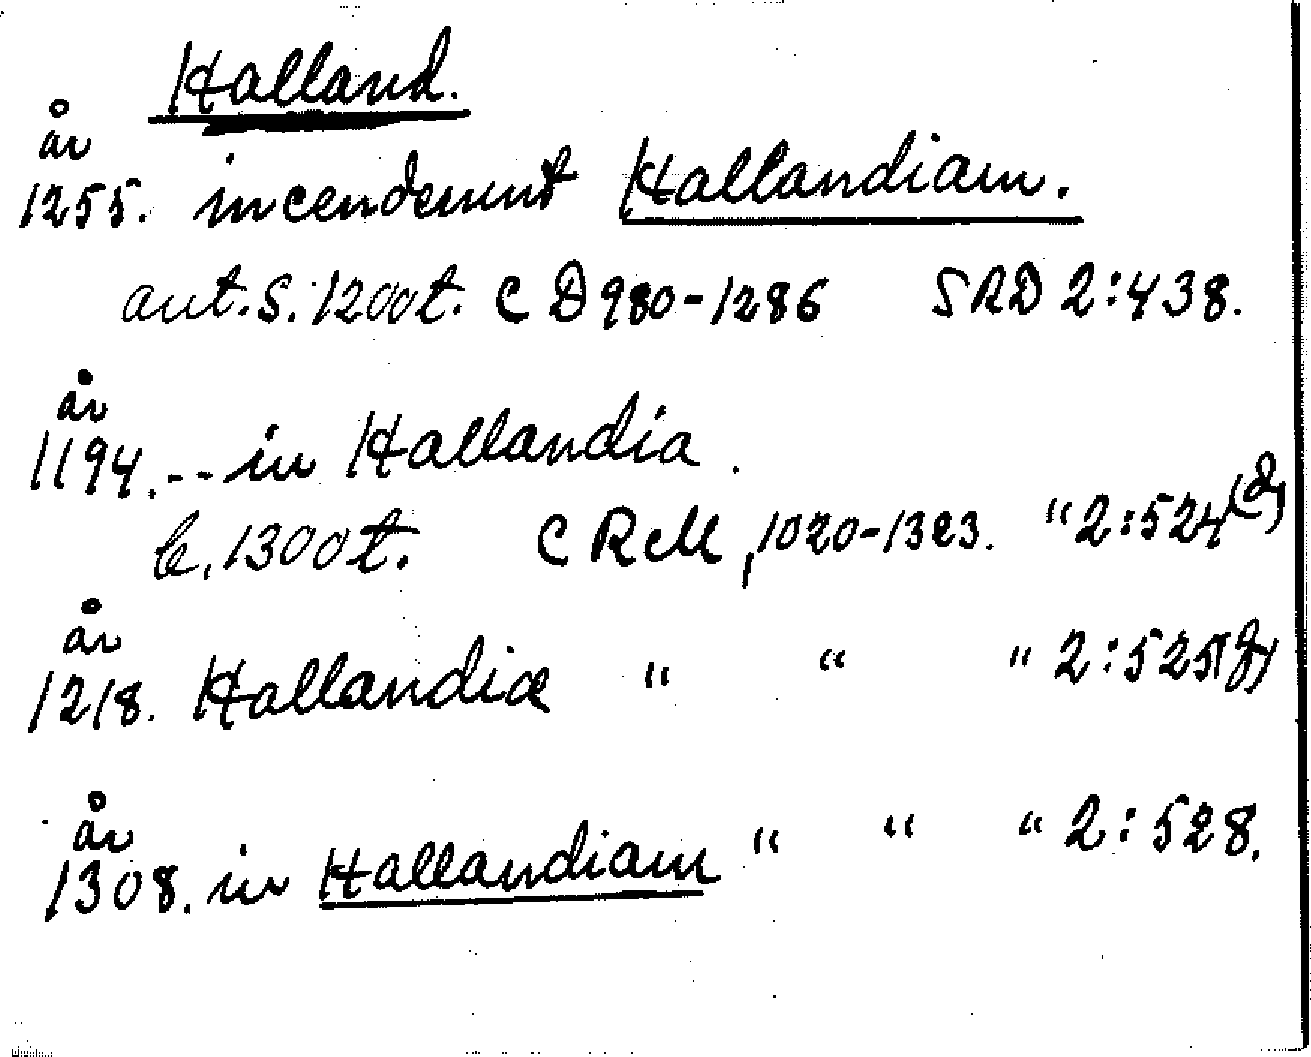 Halland.
år
1255. incenderunt Hallandiam.
ant. S. 1200 t. C D 980-1286 SRD 2:438.
år
1194. -- in Hallandia.
b. 1300 t. C R M, 1020-1323. " 2:524(d)
år
1218. Hallandiæ " " " 2:525(g)
år
1308. in Hallandiam " " " 2:528.